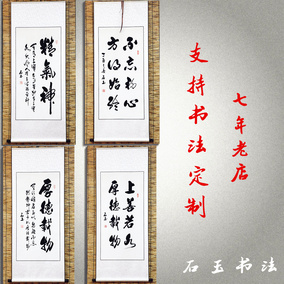 精氣神
不忘初心
方得始终
厚德载物
上善若水
厚德载物
支持书法定制
七年老店
石玉书法